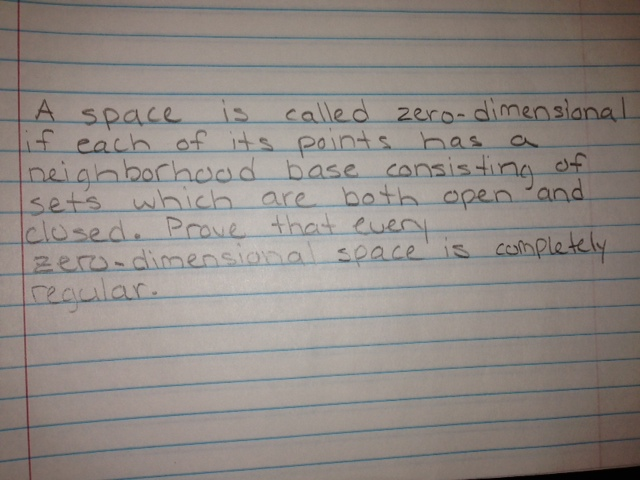 A space is called zero-dimensional
if each of its points has a
neighborhood base consisting of
sets which are both open and
closed. Prove that every
zero-dimensional space is completely
regular.